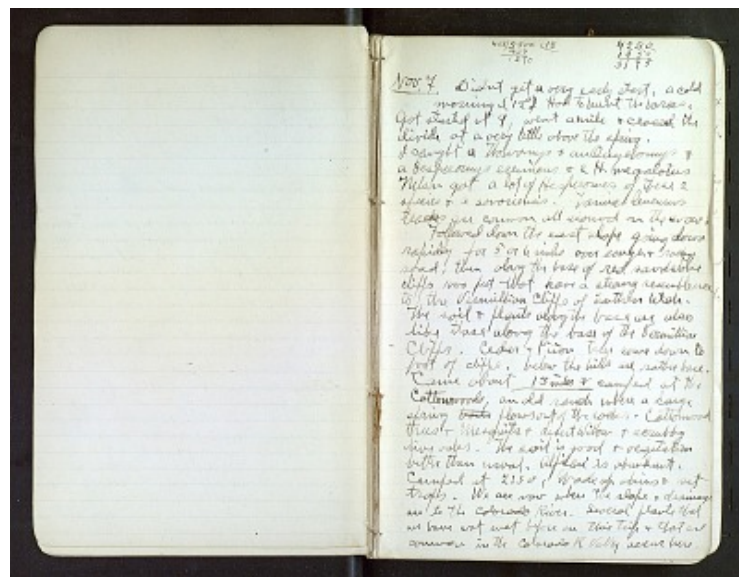 4250
Nov. 7. Didn't get a very early start, a cold
morning & 12°. Had to hunt the horses.
Got started at 9, went a mile & crossed the
divide at a very little above the spring.
I caught a Thomomys &
a Hesperomys eremicus & a H. megalotis
Nelson got a lot of Hesperomys of these 2
species &
tracks are common all around in the snow.
Followed down the east slope going down
rapidly for 5 or 6 miles over rough & rocky
road; then along the base of red sandstone
cliffs that have a strong resemblance
to the Vermillion Cliffs of Utah.
The soil & plants along the base are also
like those along the base of the Vermillion
Cliffs. Cedar & Piñon come down to
foot of cliffs, below the hills are rather bare.
Came about 15 miles & camped at the
Cottonwoods, an old ranch where a large
spring flows out of the rocks. Cottonwood
trees & Mesquite & desert willow & scrubby
live oaks. The soil is good & vegetation
better than usual. is abundant.
Camped at 2150,
traps. We are now where the slope & drainage
are to the Colorado River. Several plants that
we have not met before on this trip & that are
common in the Colorado R Valley occur here